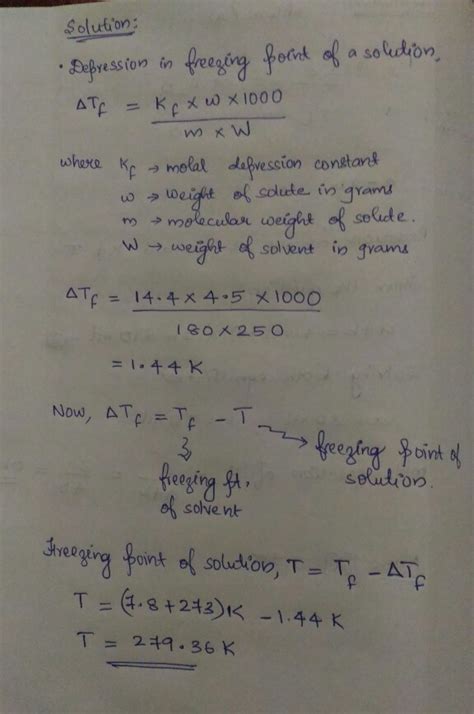 Solution:
• Depression in freezing point of a solution,
ΔTf = Kf × w × 1000
m × W
where Kf → molal depression constant
w → weight of solute in grams
m → molecular weight of solute.
W → weight of solvent in grams
ΔTf = 14.4 × 4.5 × 1000
180 × 250
= 1.44 K
Now, ΔTf = Tf - T
freezing point of
solution.
freezing pt.
of solvent
Freezing point of solution, T = Tf - ΔTf
T = (7.8 + 273)K - 1.44 K
T = 279.36 K